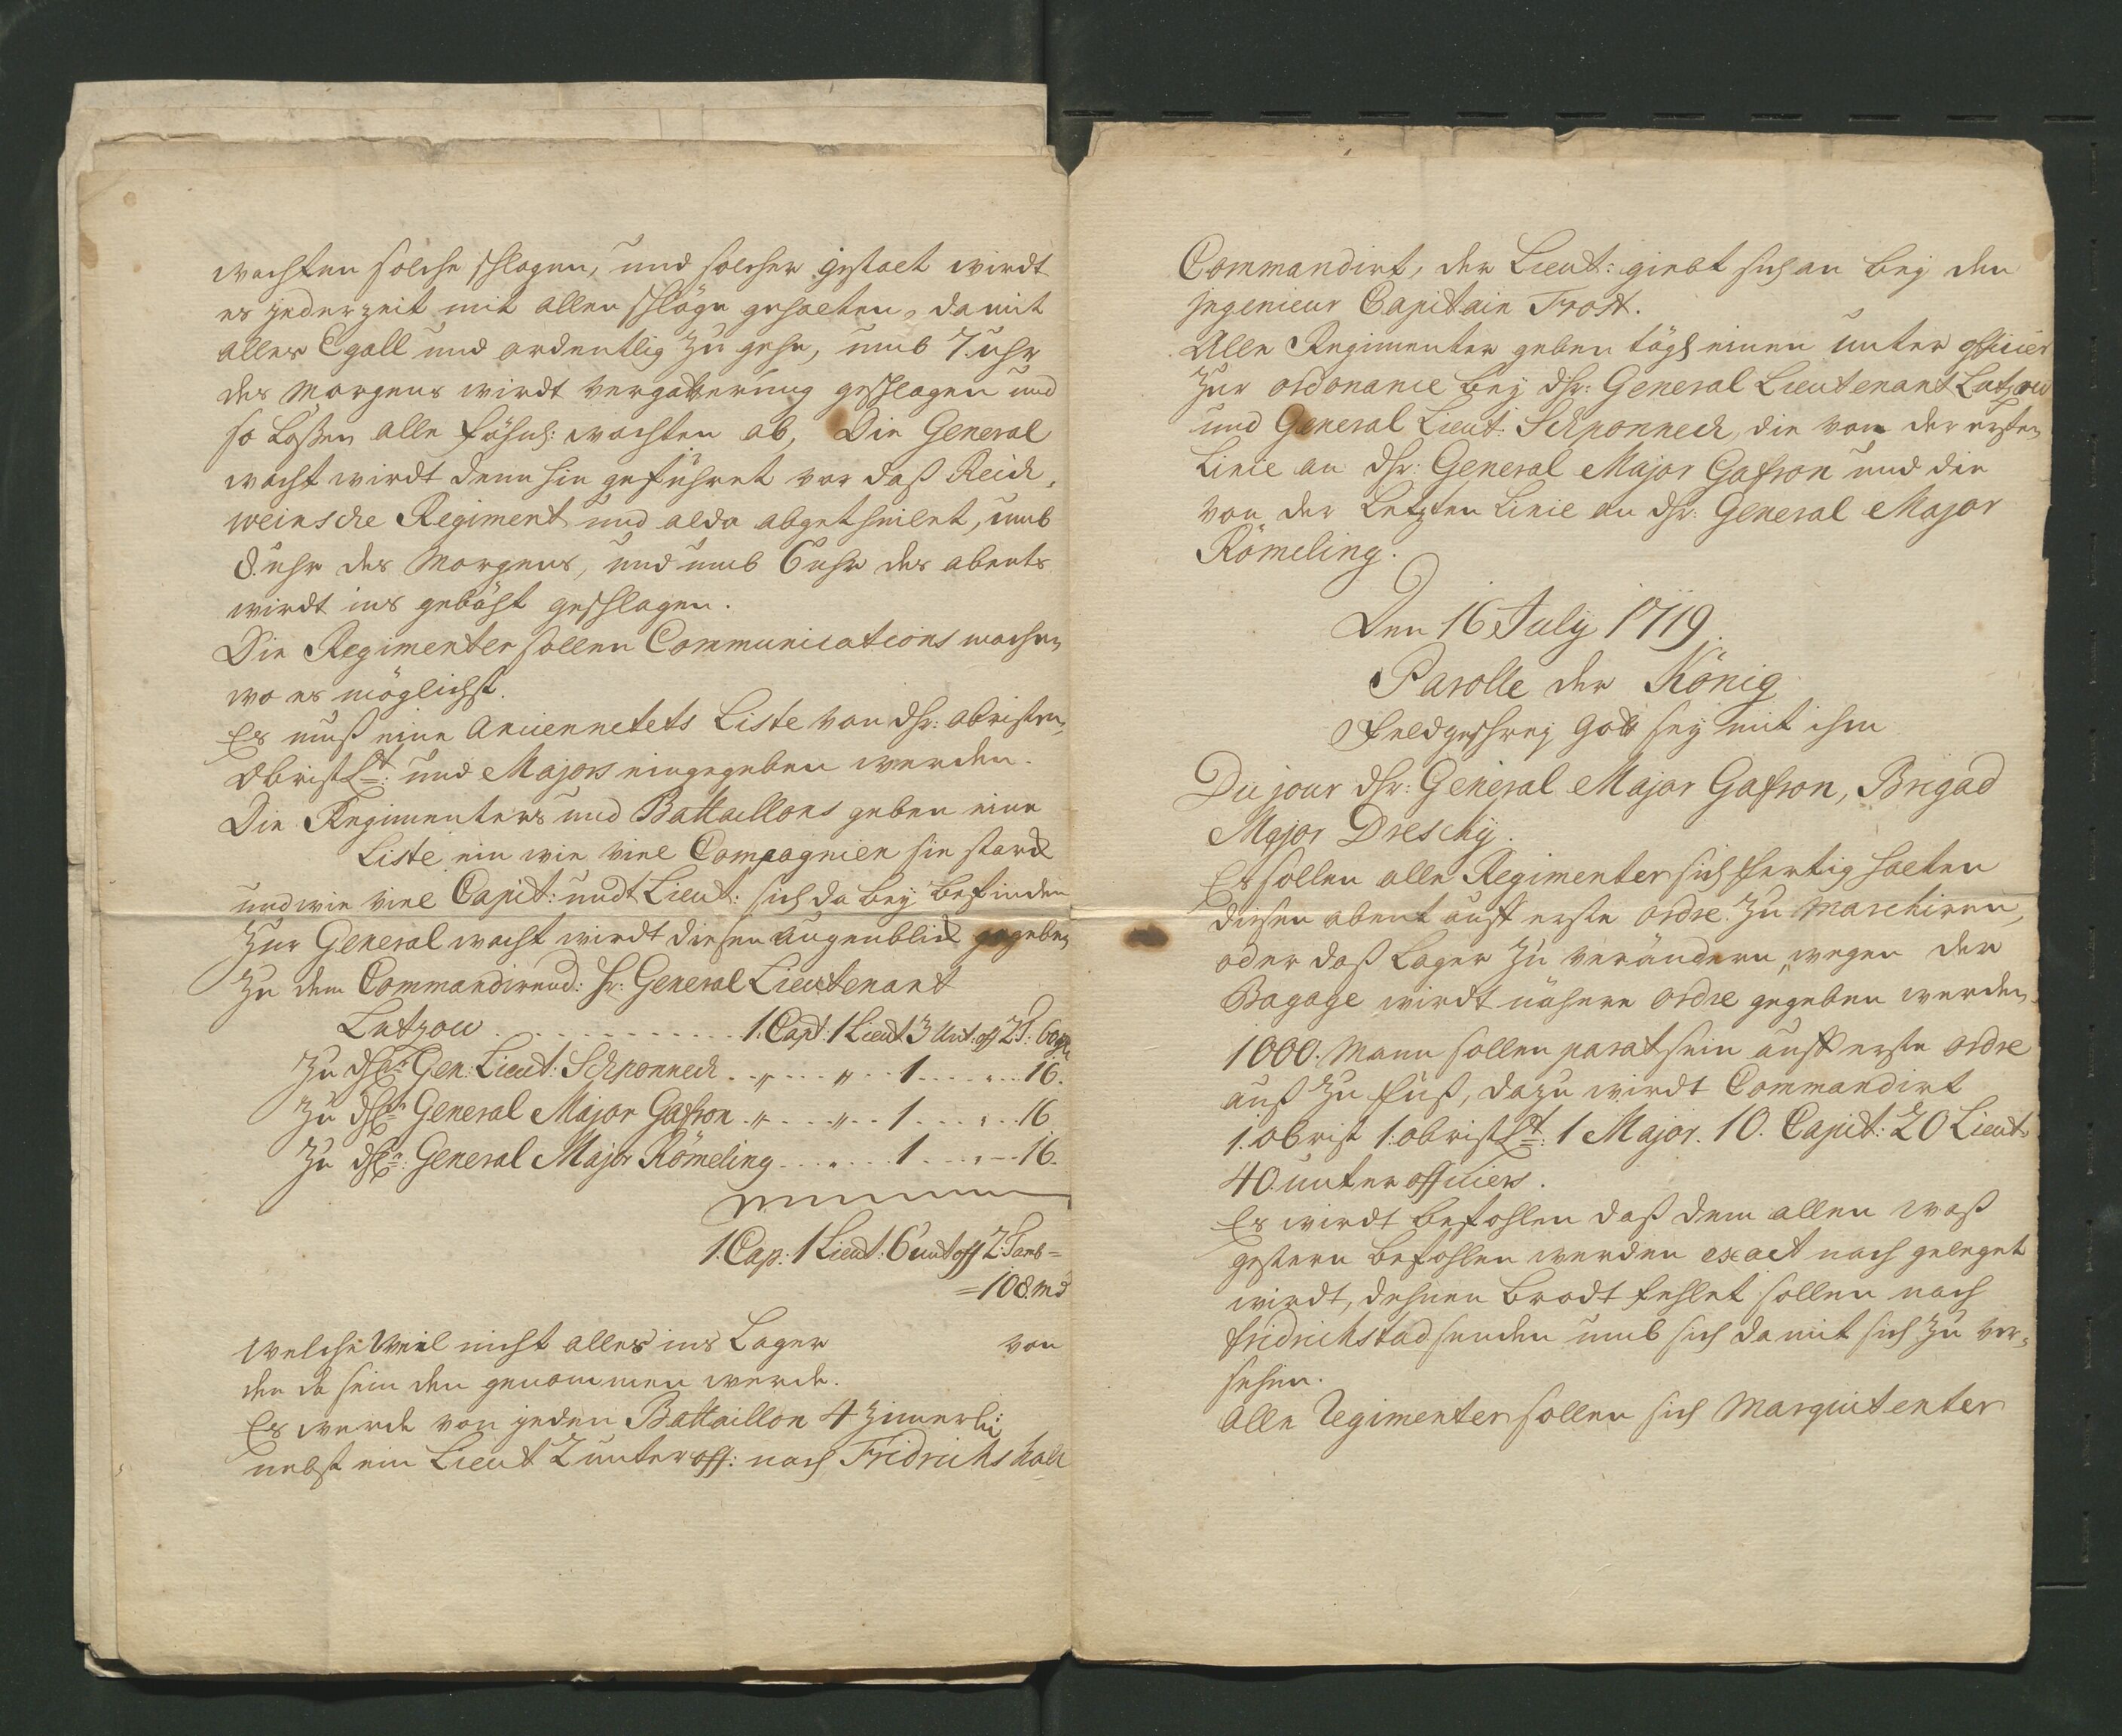 wachten solche schlagen, und solcher gestalt wirdt
es jederzeit mit allen schläge gehalten, damit
alles Egall und ordentlig zu gehe, umb 7. uhr
des Morgens wirdt vergatterung geschlagen und
so laßen alle fähnl: wachten ab, Die General
wacht wirdt denn hin geführet vor daß Reich,
weinsche Regiment und alda abgetheilet, umb
8. uhr des Morgens, und umb 6 uhr des abents
wirdt ins gebäht geschlagen.
Die Regimenter sollen Communications machen
wo es möglichst.
Es muß eine Anciennetets Liste von dhr: obristen,
Obrist Lt: und Majors eingegeben werden.
Die Regimenters und Battaillons geben eine
Liste ein wie viel Compagnien sie starck
und wie viel Capit: undt Lieut: sich da bey befinden
Zur General wacht wirdt diesen augenblick gegeben
Zu dem Commandirend: hr: General Lieutenant
Lutzow . . . . . . . . . . . 1. Capt: 1 Lieut 3 Unt: off 2 T: 60
Zu dhr: Gen: Lieut: Schponneck . . " . . . . " . . 1 . . . . . . 16.
Zu dhr: General Major Gafron . " . . . . " . . 1 . . . . . 16
Zu dhr: General Major Römeling . . . . . . . 1 . . . . - 16.
1. Cap: 1 Lieut: 6 unt off 2: Tamb=
=108. md
Welche Weil nicht alles ins Lager von
den da sein den genommen werde.
Es werde von jeden Battaillon 4 Zimerli
nebst ein Lieut 2 unter off: nach Fridrichshall
Commandirt, der Lieut: giebt sich an bey den
Ingenieur Capitain Frost.
Alle Regimenter geben tägl einen unter officier
Zur ordonance bey dhr: General Lieutenant Lutzow
und General Lieut: Schponneck, die von der ersten
Linie an dhr: General Major Gafron und die
von der Letzten Linie an dhr: General Major
Römeling.
Den 16 July 1719.
Parolle der König
Feldgeschrey Gott sey mit ihm
Du jour dhr: General Major Gafron, Brigad
Major Dreschy.
Es sollen alle Regimenter sich fertig halten
diesen abent auff erste ordre zu marchiren,
oder daß Lager zu verändern, wegen der
Bagage wirdt nähere ordre gegeben werden.
1000. Mann sollen parat sein auff erste ordre
auß zu fuß, dazu wirdt Commandirt
1. obrist 1: obrist Lt: 1 Major. 10. Capit: 20 Lieut:
40 unter officiers.
Es wirdt befohlen daß dem allen waß
gestern befohlen werden exact nach geleget
wirdt, dehnen brodt fehlet sollen nach
fridrichstad senden umb sich damit sich zu ver=
sehen.
Alle Regimenter sollen sich Marquitenter